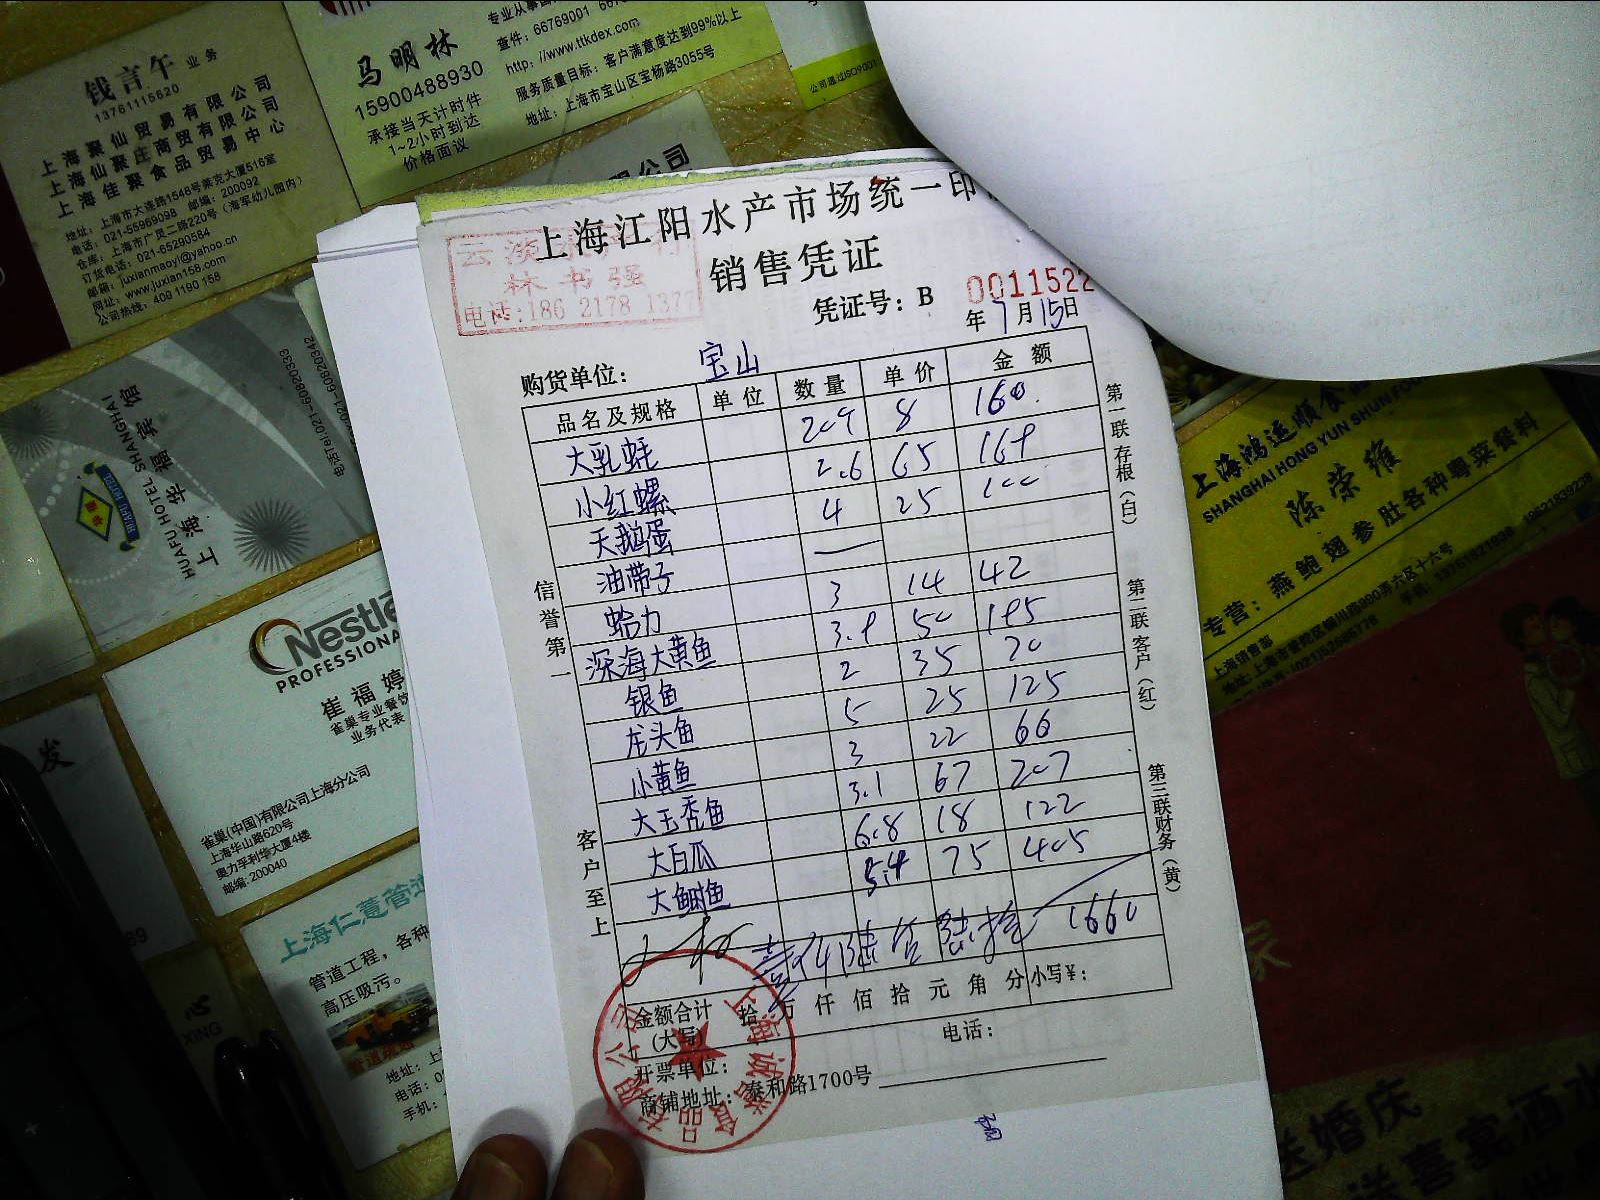 钱言午 业务
13761115620
上海聚仙贸易有限公司
上海仙聚庄商贸有限公司
上海佳聚食品贸易中心
地址：上海市大连路1548号莱克大厦516室
电话：021-55969098 邮编：200092
仓库：上海市广灵二路220号（海军幼儿园内）
订货电话：021-65290584
邮箱：juxianmaoyi@yahoo.cn
网址：www.juxian158.com
公司热线：400 1190 158
马明林
15900488930
承接当天计时件
1~2小时到达
价格面议
查件：66769001
http：//www.ttkdex.com
服务质量目标：客户满意度达到99%以上
地址：上海市宝山区宝杨路3055号
公司通过ISO9001
限公司
上海江阳水产市场统一印
销售凭证
林书强
电话:186 2178 1377
凭证号：B 0011522
年 7 月 15 日
购货单位： 宝山
品名及规格 单位 数量 单价 金额
大乳蚝 20.9 8 160.
小红螺 2.6 65 169
天鹅蛋 4 25 100
油带子 —
蛤力 3 14 42
深海大黄鱼 3.9 50 195
银鱼 2 35 70
龙头鱼 5 25 125
小黄鱼 3 22 66
大玉秃鱼 3.1 67 207
大白瓜 6.8 18 122
大鲥鱼 5.4 75 405
壹仟陆佰陆拾 1660
金额合计 拾 万 仟 佰 拾 元 角 分 小写¥：
(大写)
开票单位： 电话：
商铺地址：泰和路1700号
信誉第一
客户至上
第一联存根（白）
第二联客户（红）
第三联财务（黄）
HUAFU HOTEL SHANGHAI
上海华福宾馆
Nestlé
PROFESSIONAL
崔福婷
雀巢专业餐饮
业务代表
雀巢(中国)有限公司上海分公司
上海华山路620号
奥力孚利华大厦4楼
邮编: 200040
上海仁薏管道
管道工程，各种
高压吸污。
地址：上
电话：0
手机：
发
XING
上海鸿运顺食
SHANGHAI HONG YUN SHUN FOO
陈荣雍
专营：燕鲍翅参肚各种粤菜餐料
上海销售部
送婚庆
送喜宴酒水